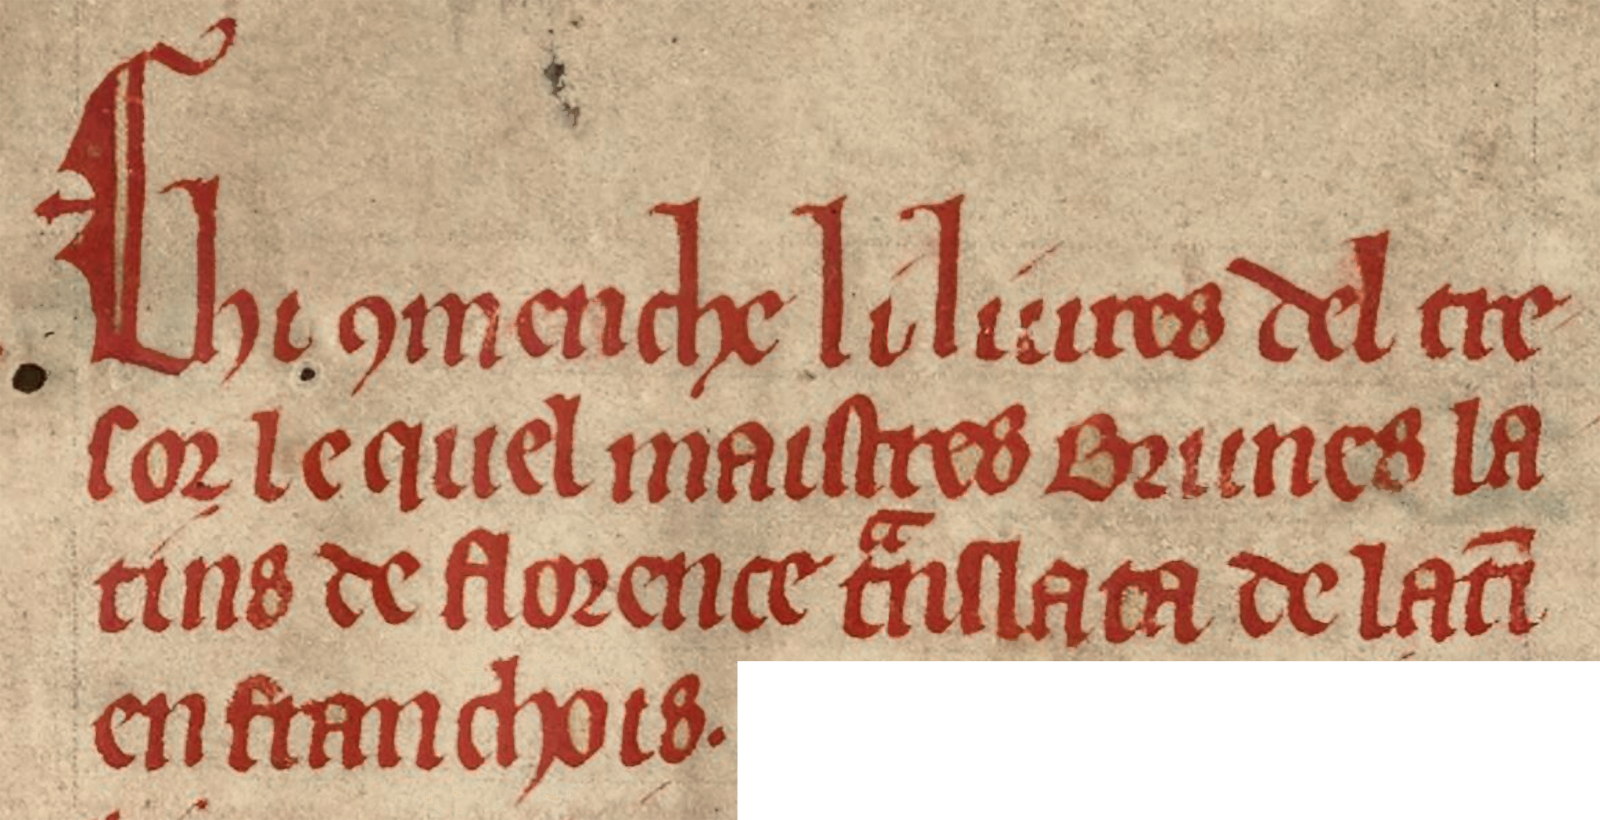 Chi ꝯmenche li liures del tre
sor lequel maistres Brunes la
tins de florence tͣnslata de latī
en franchois.